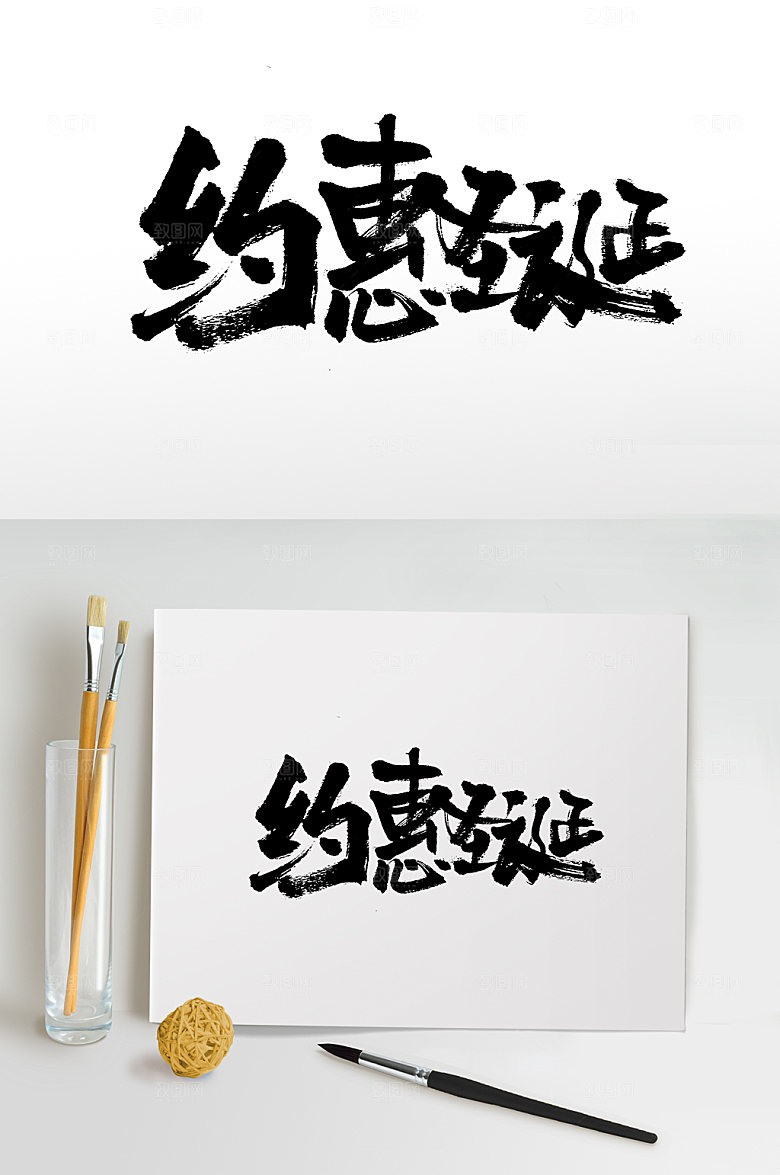 约惠圣诞
约惠圣诞